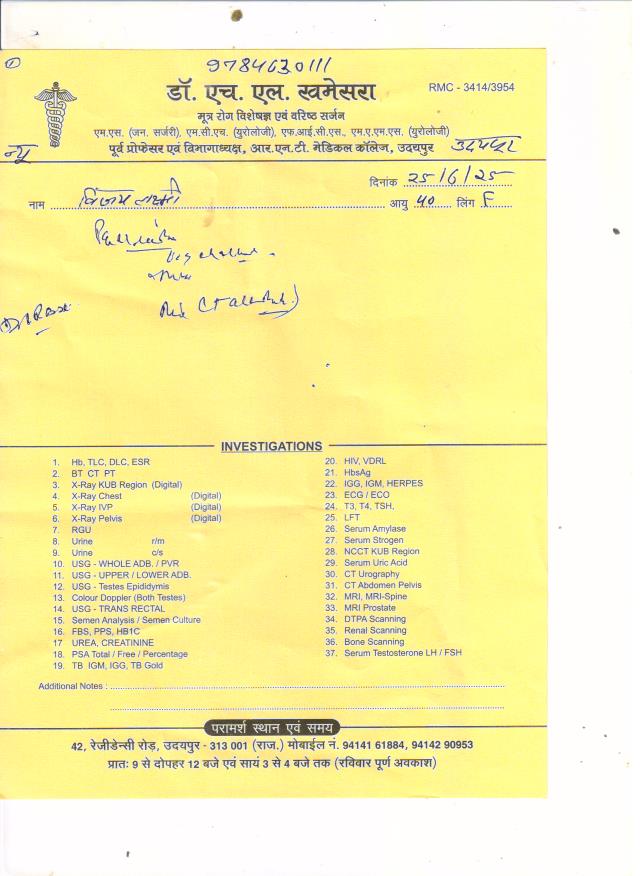 1
9784630111
डॉ. एच. एल. खमेसरा
RMC - 3414/3954
मूत्र रोग विशेषज्ञ एवं वरिष्ठ सर्जन
एम.एस. (जन. सर्जरी), एम.सी.एच. (युरोलोजी), एफ.आई.सी.एस., एम.ए.एम.एस. (युरोलोजी)
न्यू पूर्व प्रोफेसर एवं विभागाध्यक्ष, आर.एन.टी. मेडिकल कॉलेज, उदयपुर उदयपुर
दिनांक 25/6/25
नाम विजय लक्ष्मी आयु 40 लिंग F
CT
INVESTIGATIONS
1. Hb, TLC, DLC, ESR
2. BT CT PT
3. X-Ray KUB Region (Digital)
4. X-Ray Chest (Digital)
5. X-Ray IVP (Digital)
6. X-Ray Pelvis (Digital)
7. RGU
8. Urine r/m
9. Urine c/s
10. USG - WHOLE ADB. / PVR
11. USG - UPPER / LOWER ADB.
12. USG - Testes Epididymis
13. Colour Doppler (Both Testes)
14. USG - TRANS RECTAL
15. Semen Analysis / Semen Culture
16. FBS, PPS, HB1C
17 UREA, CREATININE
18. PSA Total / Free / Percentage
19. TB IGM, IGG, TB Gold
20. HIV, VDRL
21. HbsAg
22. IGG, IGM, HERPES
23. ECG / ECO
24. T3, T4, TSH,
25. LFT
26. Serum Amylase
27. Serum Strogen
28. NCCT KUB Region
29. Serum Uric Acid
30. CT Urography
31. CT Abdomen Pelvis
32. MRI, MRI-Spine
33. MRI Prostate
34. DTPA Scanning
35. Renal Scanning
36. Bone Scanning
37. Serum Testosterone LH / FSH
Additional Notes :
परामर्श स्थान एवं समय
42, रेजीडेन्सी रोड़, उदयपुर - 313 001 (राज.) मोबाईल नं. 94141 61884, 94142 90953
प्रातः 9 से दोपहर 12 बजे एवं सायं 3 से 4 बजे तक (रविवार पूर्ण अवकाश)